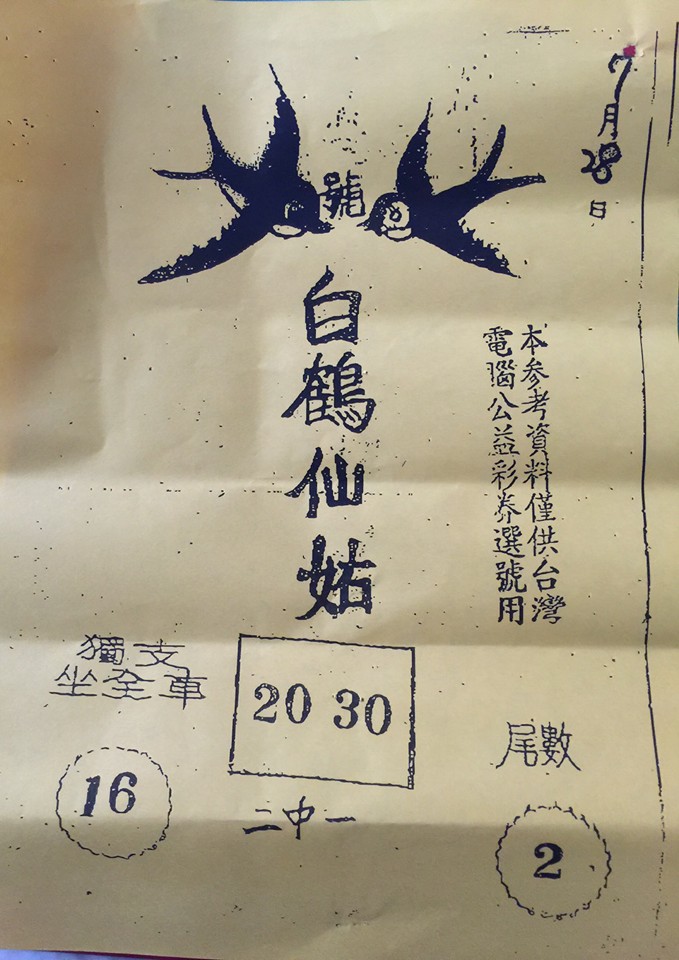 7月28日
號
白鶴仙姑
本參考資料僅供台灣
電腦公益彩券選號用
獨支
坐全車
16
20 30
二中一
尾數
2